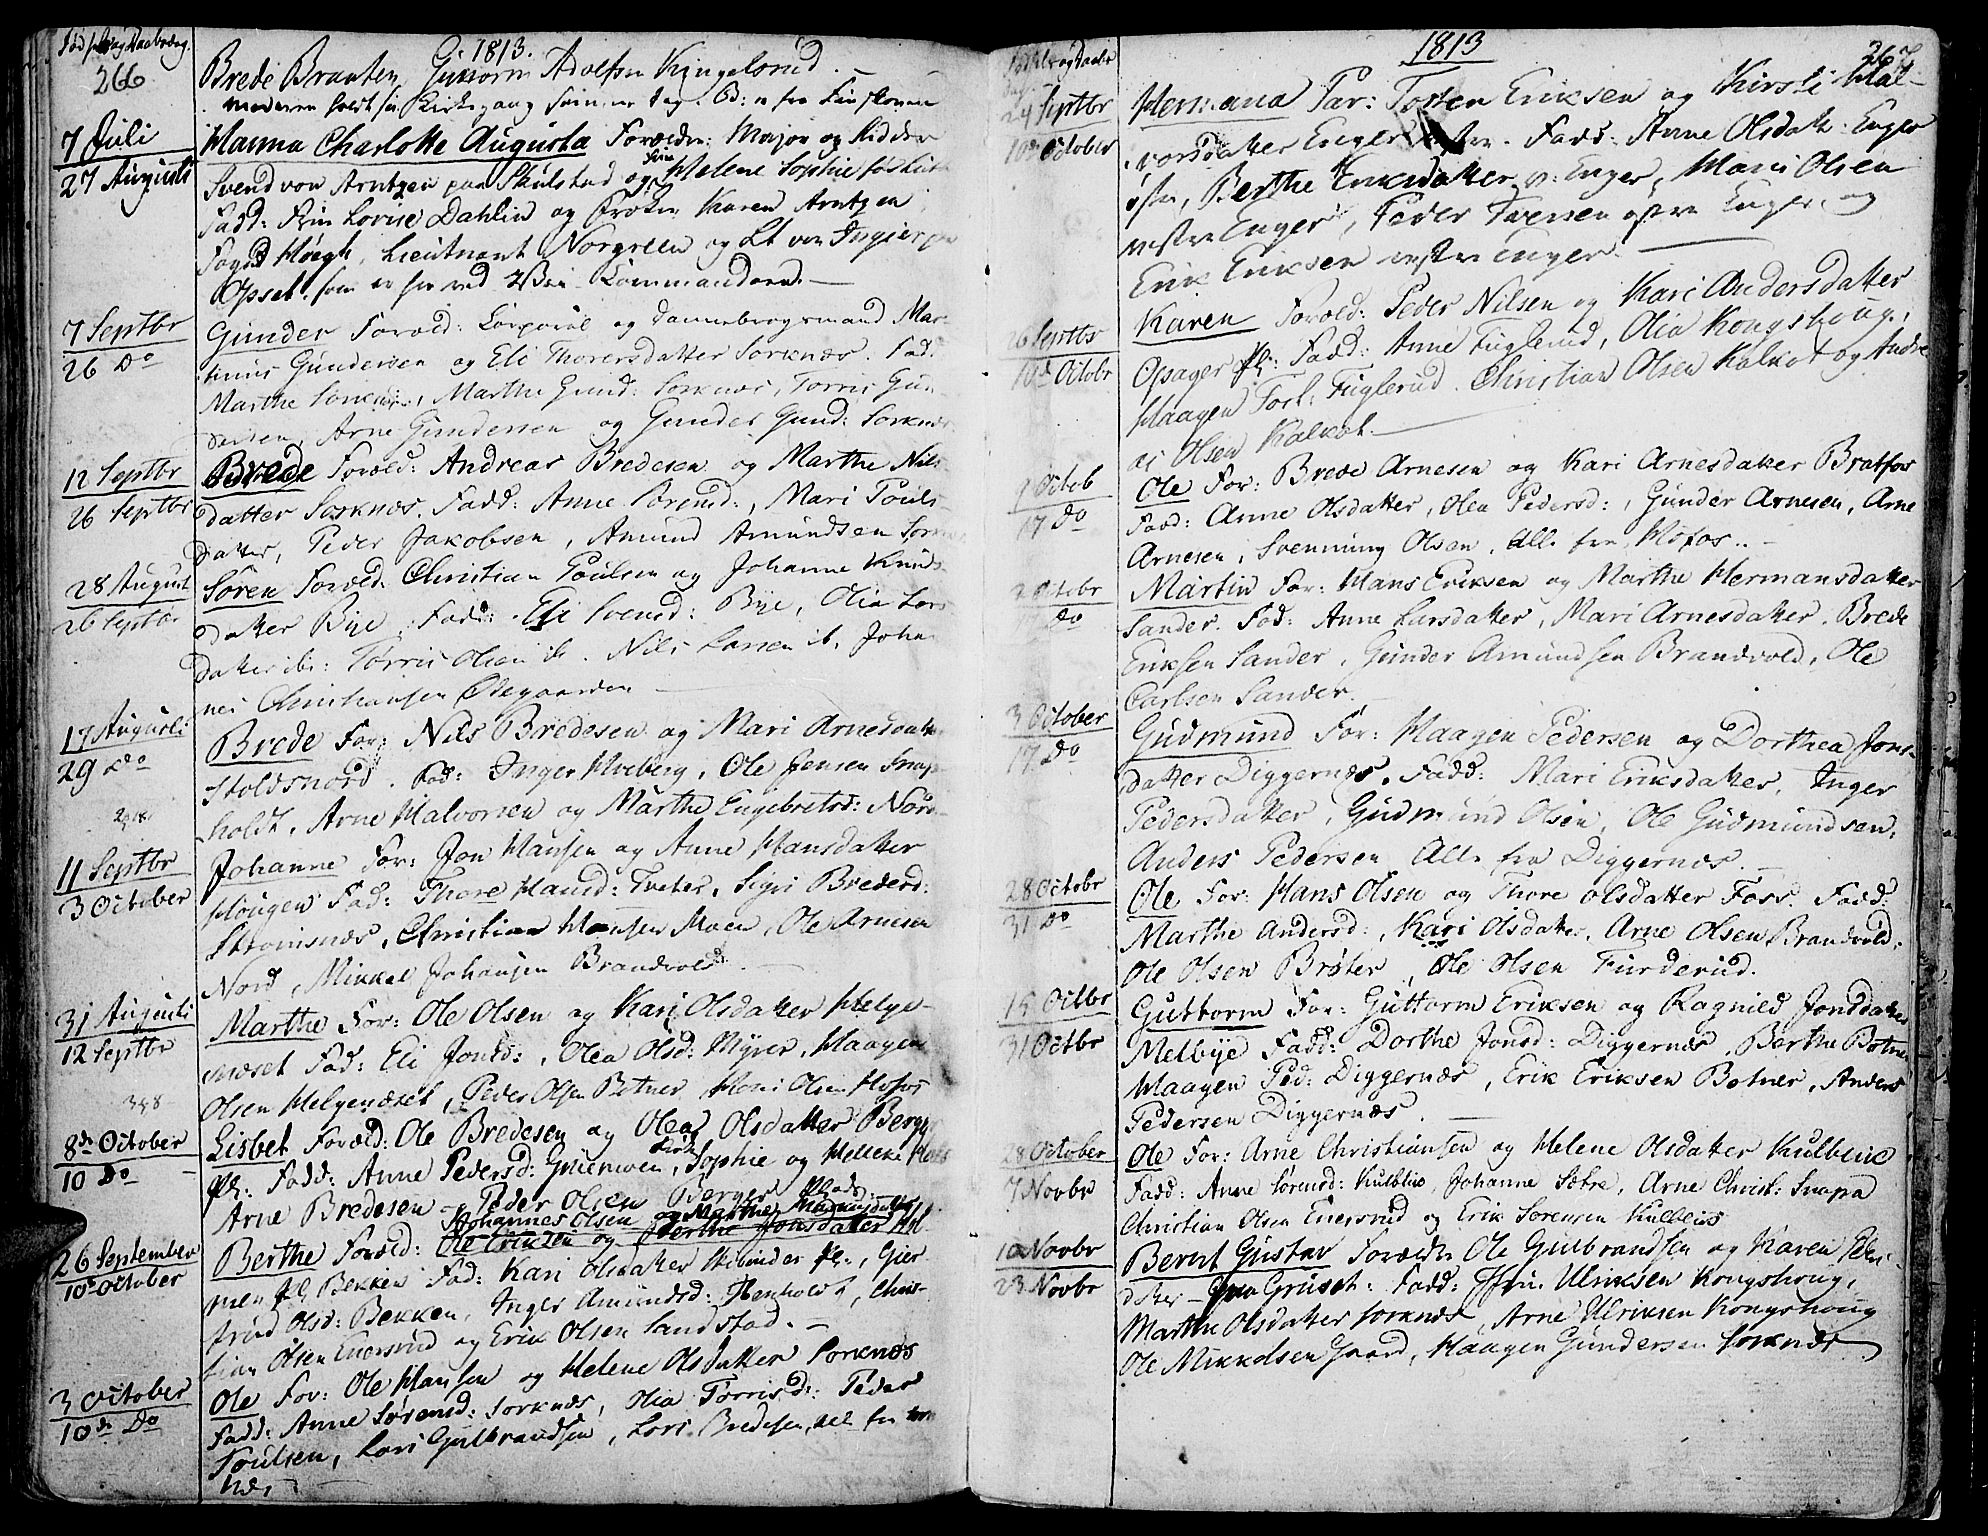 266
1813.
Brede Braaten, Guttorm Adolfsen Kingelsrud. —
7 Juli
27 Augusti
Hanna Charlotte Augusta Forældre: Major og Ridder
Svend von Arntzen paa Skulstad og Helene Sophie
Fadd: Lovise Dahlin og Frøken Karen Arntzen
Foged Høegh, Lieutnant Norgreen og Lt von Ingier
Opset.
7 Septbr
26 Do
Gunder Foræld: Corporal og Dannebrogsmand Mar-
tinus Gundersen og Eli Thorersdatter Sorknæs. Fad:
Marthe Sorknæs, Marthe Gund: Sorknæs, Torris Gun-
dersen, Arne Gundersen og Gunder Gund: Sorknæs
12 Septbr
26 Septbr
Brede Foræld: Andreas Bredesen og Marthe Nils
datter Sorknæs. Fadd: Anne, Mari Pouls-
datter, Peder Jakobsen, Amund Amundsen
28 August
26 Septbr
Søren Foræld: Christian Poulsen og Johanne Knuds
datter Bye. Fadd: Eli Svensd: Bye, Olia Lars
datter ib: Torris Olsen ib. Nils Larsen ib. Johan
nes Christiansen Ødegaarden —
17 Augusti
29 Do
Brede For: Nils Bredesen og Mari Arnesdatter
Noldsnord. Fad: Inger Hveberg, Ole Jensen Snap-
holdt, Arne Halvorsen og Marthe Engebretsd: Nord-
11 Septbr
3 October
Johanne For: Jon Hansen og Anne Hansdatter
Hougen Fad: Thore Hansd: Tveter, Sigri Bredesd:
Strømsnæs, Christian Hansen Moen, Ole Arnesen
Nord, Mikkel Johansen Brandvold —
31 Augusti
12 Septbr
Marthe For: Ole Olsen og Kari Olsdatter Helge-
næset Fad: Eli Jonsd:, Olea Olsd: Myrer, Haagen
Olsen Helgenæset, Peder Olsen Botner, Olsen Hofos
8de October
10 Do
Lisbet Foræld: Ole Bredesen og Olea Olsdatter Berger
Pl: Fadd: Anne Pedersd: Gruemoen, Sophie og Helene
Arne Bredesen, Peder Olsen Berger
Johannes Olsen og Marthe Rasmusdatter
26 September
10de October
Berthe Foræld: Ole Eriksen og Berthe Jonsdatter
Pl: Bekken Fad: Kari Olsdatter Pl:, Gjer
trud Olsd: Bekken, Inger Amundsd: Stenholdt, Chris-
tian Olsen Enersrud og Erik Olsen Sandstad. —
3 October
10de Do
Ole For: Ole Hansen og Helene Olsdatter Sorknæs
Fadd: Anne Sørensd: Sorknæs, Olia Torrisd: Peder
Poulsen, Lars Gulbrandsen, Lars Bredesen, alle fra Sork
næs
1813
267
24 Septbr
10de October
Hermana For: Torsten Eriksen og Kirsti Hal-
vorsdatter Enger østre. Fadd: Anne Olsdatter Enger
østre, Berthe Eriksdatter v: Enger, Maris Olsen
vestre Enger, Peder Iversen østre Enger, og
Erik Eriksen vestre Enger. —
26 Septbr
10de Octobr
Karen Foræld: Peder Nilsen og Kari Andersdatter
Opager Pl: Fadd: Anne Fuglerud, Olia Kongshoug,
Haagen Fuglerud. Christian Olsen Kalkot og Andre
as Olsen Kalkot —
9 Octob
17 Do
Ole For: Brede Arnesen og Kari Arnesdatter Bratfos
Fadd: Anne Olsdatter, Olea Pedersd:, Gunder Arnesen, Arne
Arnesen, Svenning Olsen, alle fra Hofos. —
2 Octobr
17 Do
Martin For: Hans Eriksen og Marthe Hermansdatter
Sander. Fad: Anne Larsdatter, Mari Arnesdatter. Brede
Eriksen Sander, Gunder Amundsen Brandvold, Ole
Carlsen Sander. —
3 October
17 Do
Gudmund For: Haagen Pedersen og Dorthea Jons-
datter Diggernæs. Fadd: Mari Eriksdatter, Inger
Pedersdatter, Gudmund Olsen, Ole Gudmundsen,
Anders Pedersen Alle fra Diggernæs. —
28 Octobr
31 Do
Ole For: Hans Olsen og Thore Olsdatter Foss. Fadd:
Marthe Andersd:, Kari Olsdatter, Arne Olsen Brandvold,
Ole Olsen Brøter, Ole Olsen Furderud.
15 Octbr
31 Octbr
Guttorm For: Guttorm Eriksen og Ragnild Jonsdatter
Melbye Fadd: Dorthe Jonsd: Diggernæs, Berthe Botner
Haagen Ped: Diggernæs, Erik Eriksen Botner, Anders
Pedersen Diggernæs. —
28 October
7 Novbr
Ole For: Arne Christiansen og Helene Olsdatter Kulblik
Fadd: Anne Sørensd: Kulblik, Johanne Sætre, Arne Christ: Snapa
Christian Olsen Enersrud og Erik Sørensen Kulblik
10 Novbr
23 Novbr
Bernt Gustav Forældre Ole Gulbrandsen og Karen Peder
datter — fra Gruset. Fadd: Ulriksen Kongshoug,
Marthe Olsdatter Sorknæs, Arne Ulriksen Kongshoug
Ole Mikkelsen Gaard, Haagen Gundersen Sorknæs